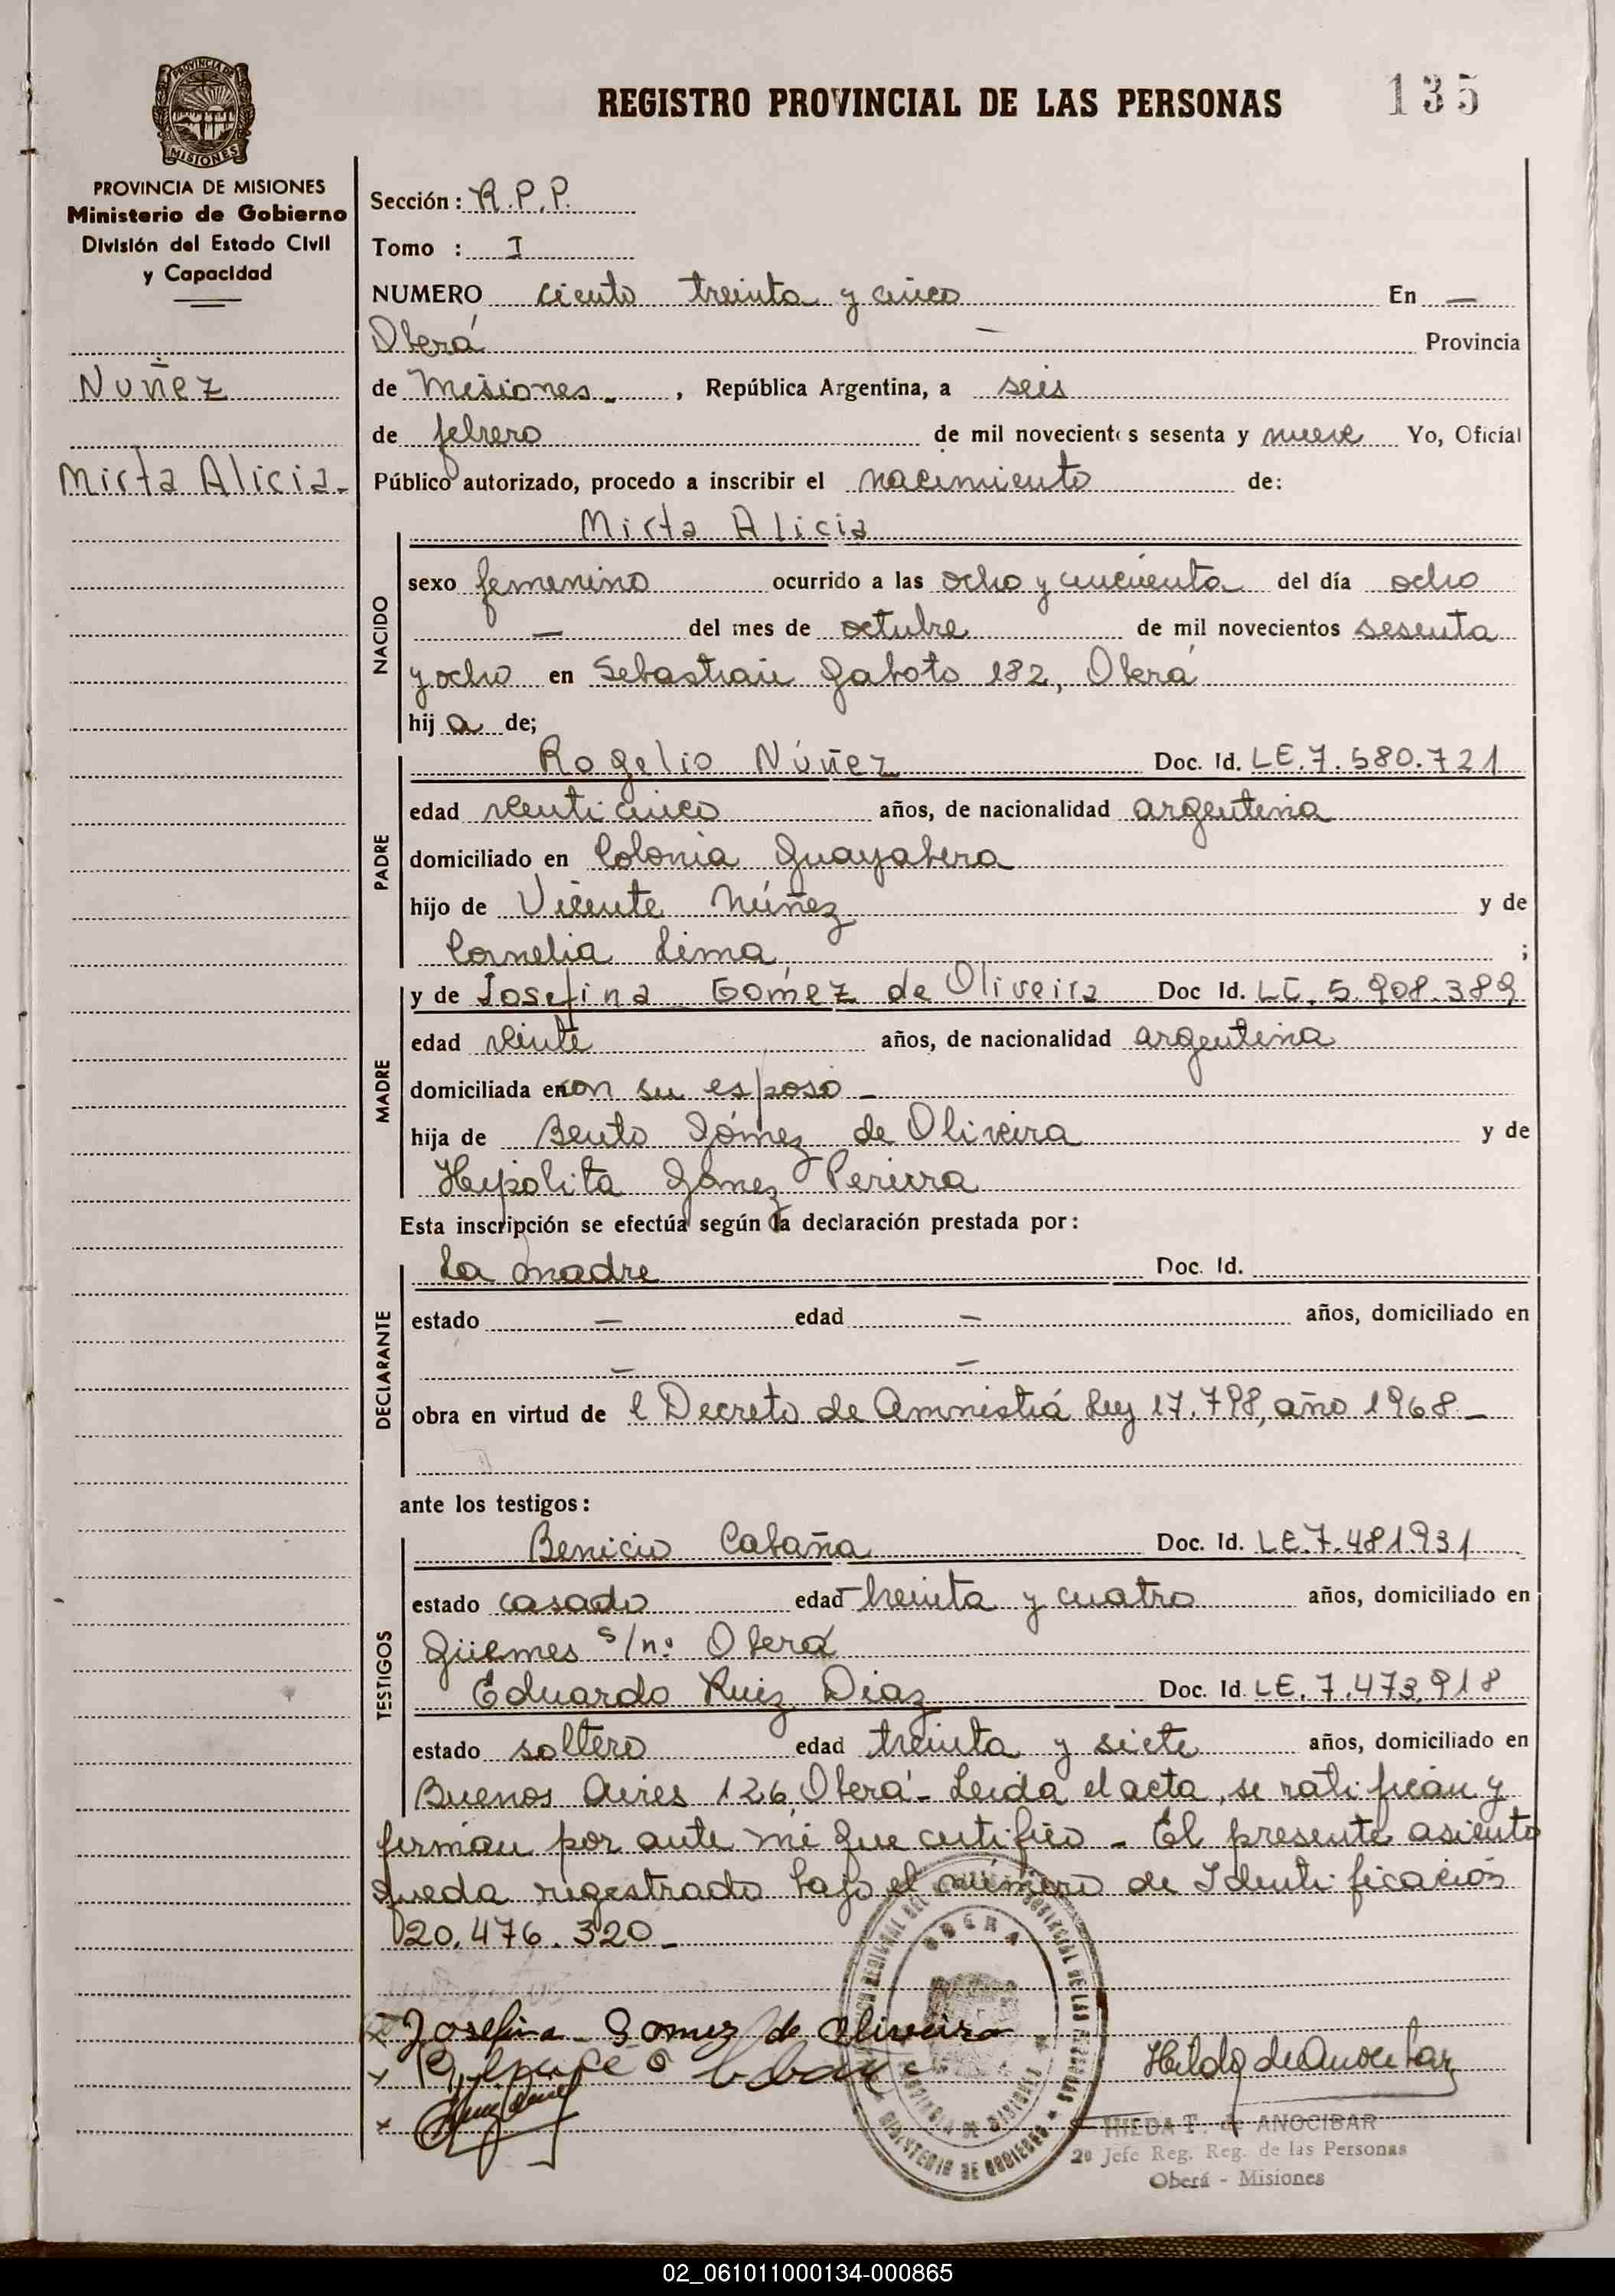 REGISTRO PROVINCIAL DE LAS PERSONAS 135
PROVINCIA DE MISIONES
PROVINCIA DE MISIONES
Ministerio de Gobierno
División del Estado Civil
y Capacidad
Núñez
Mirta Alicia.-
Sección: R.P.P.
Tomo : I
NUMERO ciento treinta y cinco En —
Oberá — Provincia
de Misiones.- , República Argentina, a seis
de febrero de mil novecientos sesenta y nueve Yo, Oficial
Público autorizado, procedo a inscribir el nacimiento de:
Mirta Alicia
NACIDO
sexo femenino ocurrido a las ocho y cincuenta del día ocho
— del mes de octubre de mil novecientos sesenta
y ocho en Sebastian Gaboto 182, Oberá
hij a de;
PADRE
Rogelio Núñez Doc. Id. LE.7.580.721
edad venticinco años, de nacionalidad argentina
domiciliado en Colonia Guayabera
hijo de Vicente Núñez y de
Cornelia Lima ;
MADRE
y de Josefina Gómez de Oliveira Doc Id. LC.5.908.389
edad veinte años, de nacionalidad argentina
domiciliada en con su esposo -
hija de Bento Gómez de Oliveira y de
Hypolita Gómez Pereira
Esta inscripción se efectúa según la declaración prestada por:
DECLARANTE
La madre Doc. Id.
estado — edad — años, domiciliado en
— —
obra en virtud de l Decreto de Amnistiá Ley 17.798, año 1968.-
ante los testigos:
TESTIGOS
Benicio Cabaña Doc. Id. LE.7.481.931
estado casado edad treinta y cuatro años, domiciliado en
Güemes s/nº Oberá
Eduardo Ruiz Diaz Doc. Id. LE.7.473.918
estado soltero edad treinta y siete años, domiciliado en
Buenos Aires 126, Oberá - Leida el acta, se ratifican y
firman por ante mi que certifico - El presente asiento
queda registrado bajo el número de Identificación
20.476.320.-
OBERA
PROVINCIA DE MISIONES
MINISTERIO DE GOBIERNO
x Josefina Gomez de Oliveira
x
x
Hilda de Anocibar
HILDA T. de ANOCIBAR
2º Jefe Reg. Reg. de las Personas
Oberá - Misiones
02_061011000134-000865